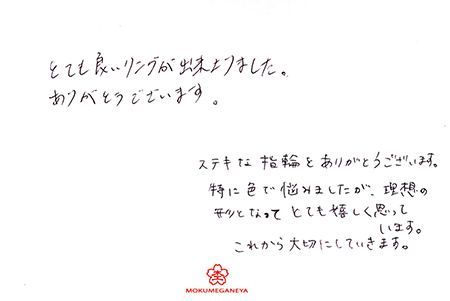 とても良いリングが出来上りました。
ありがとうございます。
ステキな指輪をありがとうございます。
特に色で悩みましたが、理想の
形となって とても嬉しく思って
います。
これから大切にしていきます。
MOKUMEGANEYA